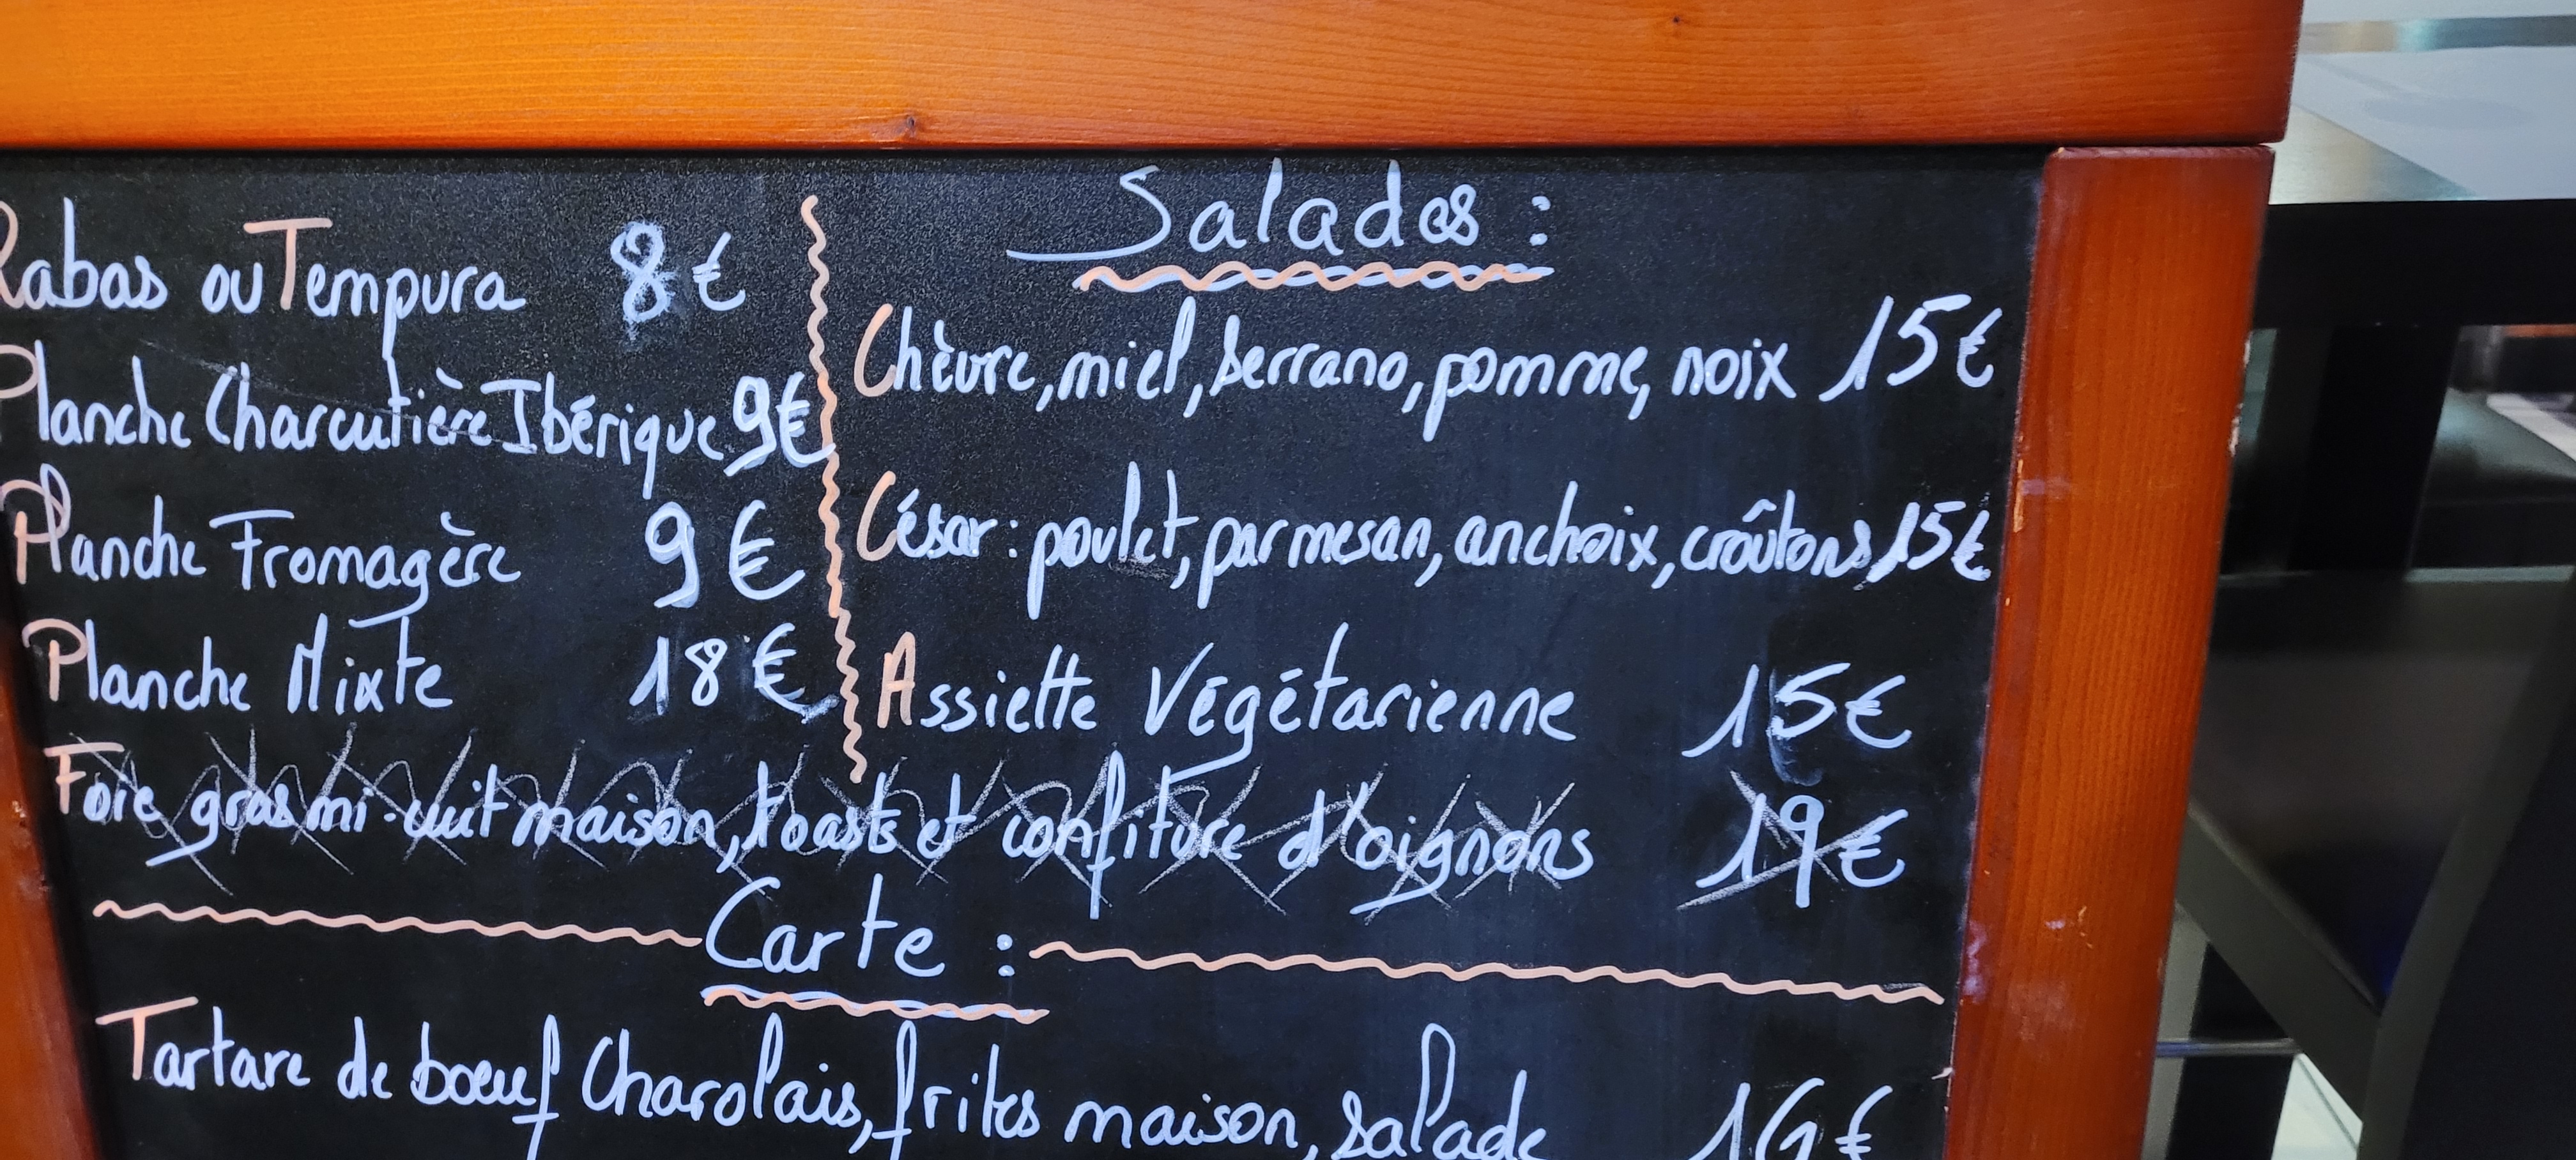 Rabas ou Tempura 8€
Planche Charcutière Ibérique 9€
Planche Fromagère 9€
Planche Mixte 18€
Salades :
Chèvre, miel, serrano, pomme, noix 15€
César : poulet, parmesan, anchoix, croûtons, 15€
Assiette Végétarienne 15€
Foie gras mi-cuit maison, toasts et confiture d'oignons 19€
Carte :
Tartare de boeuf Charolais, frites maison, salade 16€